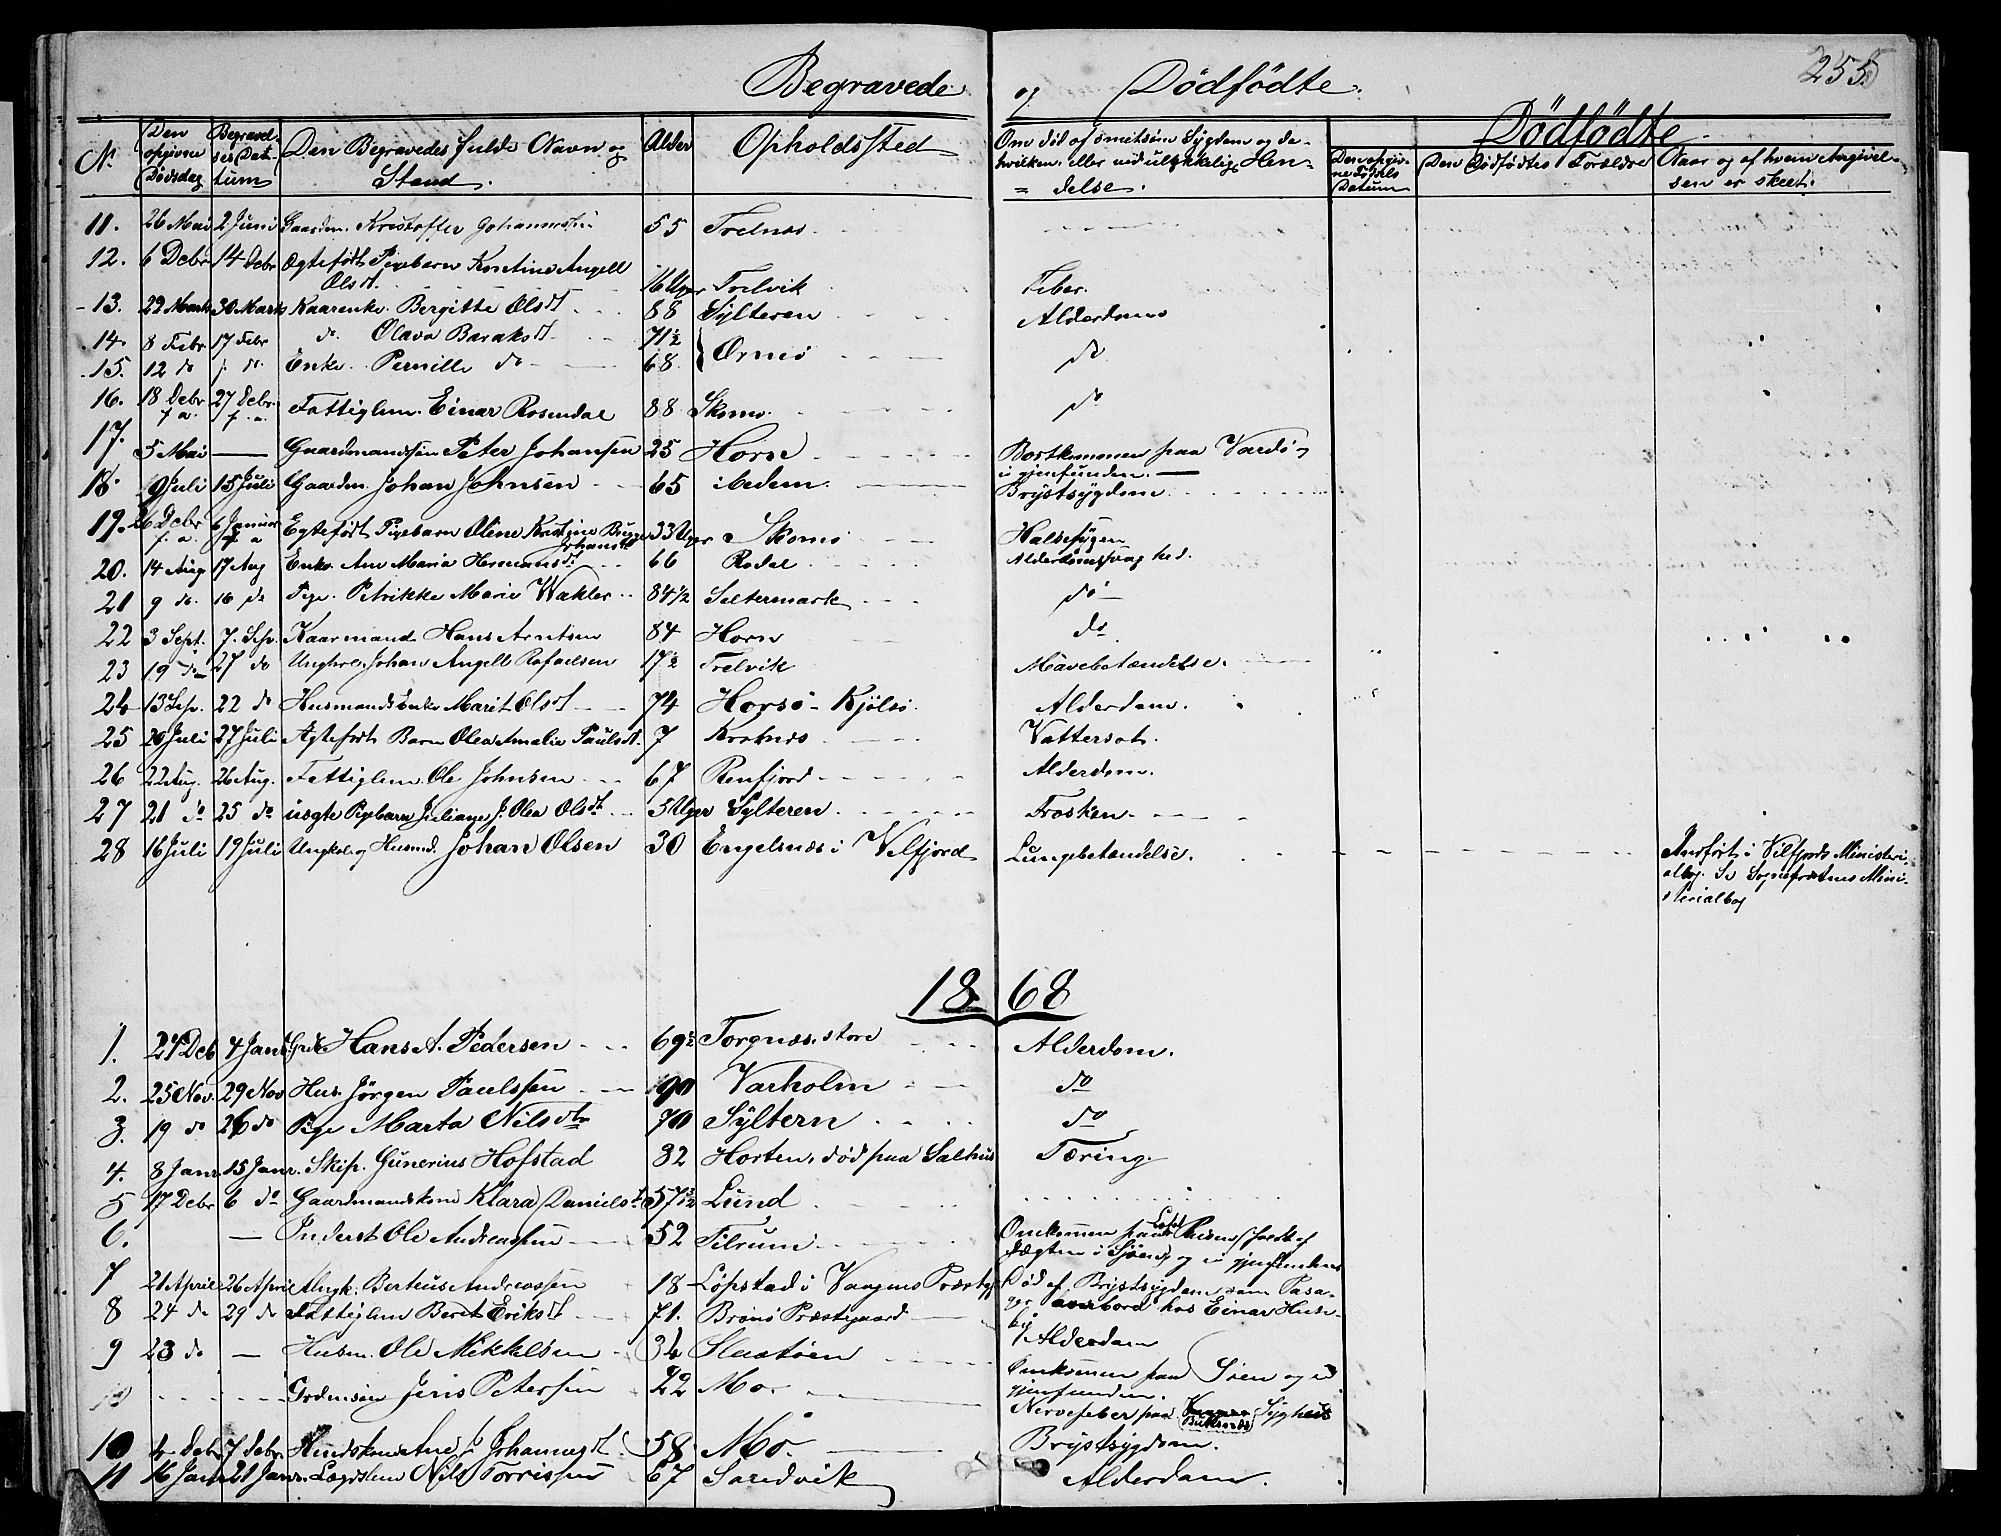 255
Begravede og Dødfødte.
Dødfødte.
No. Den opgivne Dødsdag Begravelses Datum Den Begravedes fulde Navn og Stand. Alder Opholdssted Om død af smitsom Sygdom og da hvilken, eller ved ulykkelig Hændelse. Den opgivne Dødsels Datum Den Dødfødtes Forældre Naar og af hvem Angivelsen er skeet.
11. 26 Mai 2 Juni Gaardm. Kristoffer Johannessen 55 Trelnæs
12. 6 Debr 14 Debr Ægtefødt Pigebarn Kristine Angell
Olsdt. 16 Uger Trelvik Feber.
13. 22 Marts 30 Marts Kaarenke Bergitte Olsdt 88 Sylteren Alderdom
14. 8 Febr 17 Febr do. Olava Baraksdt 71½
15. 12 do do. Enke Pernille do 68 Ørnø do
16. 18 Debr f. a. 27 Debr. f. a. Fattiglem. Einar Rosendal 88 Skomo. do
17. 5 Mai — Gaardmandssøn Peter Johansen 25 Horn Bortkommen paa Vardø
i gjenfunden. —
18. 9 Juli 15 Juli Gaardm. Johan Johnsen 65 ibedem. Brystsygdom
19. 26 Debr f. a. 6 Januar Egtefødt Pigebarn Oline Kristine Johansdt 33 Uger Skomo Halsesygen
20. 14 Aug 17 Aug Enke Ane Maria Hermansdt 66 Rodal Alderdomssvaghed.
21 9 do. 16 do Pige. Petrikke Marie Wakler 84½ Saltermark do
22 3 Sept. 7. Sep. Kaarmand Hans Arntsen 84 Horn do
23 19 do 27 do Ungkrl. Johan Angell Rafaelsen 17½ Trelvik Mavebetændelse.
24 13 Sep. 22 do Husmandsenke Marit Olsdt 74 Horsø - Kjølsø Alderdom.
25 20 Juli 27 Juli Ægtefødt Barn Olea Amalie Paulsdt. 7 Vattersot.
26 22 Aug. 26 Aug. Fattiglem. Ole Johnsen 67 Renfjord Alderdom.
27 21 do 25 do uægte Pigebarn Juliane J. Olea Olsdt 5 Uger Sylteren Trosken.
28 16 Juli 19 Juli Ungkal og Husmd. Johan Olsen 30 Engelsnæs i Velfjord Lungebetændelse. Anført i Vilfjords Ministeri-
albog. Se Sognefræstens Mini-
sterialbog
1868
1. 24 Deb 4 Janr. Hans A. Pedersen 69½ Torgnæs, store Alderdom.
2. 25 Nov. 29 Nov Hus. Jørgen Paulssen 90 Varholm do
3. 19 do 26 do Pige Marta Nilsdtr 70 Syltern do
4. 8 Janr. 15 Janr. Skip. Gunerius Hofstad 32 Horten, død paa Salhus Tæring.
5 17 Debr 6 do Gaardmandskone Klara Danielsdt 57½ Lund
6. — Inderst Ole Andreassen 52 Tilrum Omkommen paa
Jægten i Sjøen, og ei gjenfunden
7 21 April 26 April Ungk. Berteus Andreassen 18 Lopstad i Vaagens Præstgj Død af Brystsygdom som Pasa-
8 24 do 29 do Fattiglem Beret Eriksdt 71. Brønø Præstegaard ger averbord hos Einar Huse-
by Alderdom
9 23 do — Husm. Ole Mikkelsen 34 Omkommen paa Sjøen og ei
gjenfunden.
10 Jens Petersen 22 Mo Nervefeber paa Buksnæs Syghus
10 4 Debr 7 debr. Ane J. Johannesdt 58 Mo. Brystsygdom.
11 16 Janr 21 Janr. Lægdslem Nils Torrissen 67 Sandvik Alderdom.